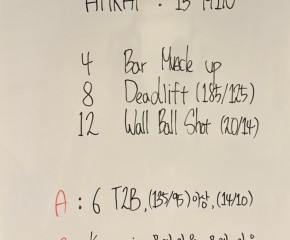 AMRAP : 15 MIN
4 Bar Muscle up
8 Deadlift (185/125)
12 Wall Ball Shot (20/14)
A : 6 T2B, (135/95) 이상, (14/10)